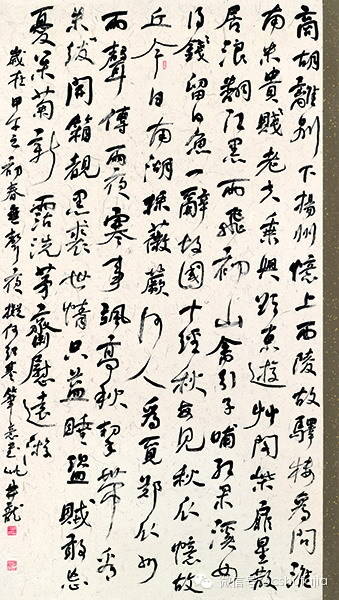 商胡離別下揚州憶上西陵故驛樓為問淮
南米貴賤老夫乘興欲東遊艸閣柴扉星散
居浪翻江黑雨飛初山禽引子哺紅果溪女
得錢留白魚一辭故國十經秋每見秋瓜憶故
丘今日南湖採薇蕨何人為覓鄭瓜州
雨聲傳兩夜寒事颯高秋挈帶看
朱紱開箱覩黑裘世情只益睡盜賊敢忘
憂松菊新霑洗茅齋慰遠遊
歲在甲午之初春聲夜擬何紹基筆意書此龍
微信号: cshufajia